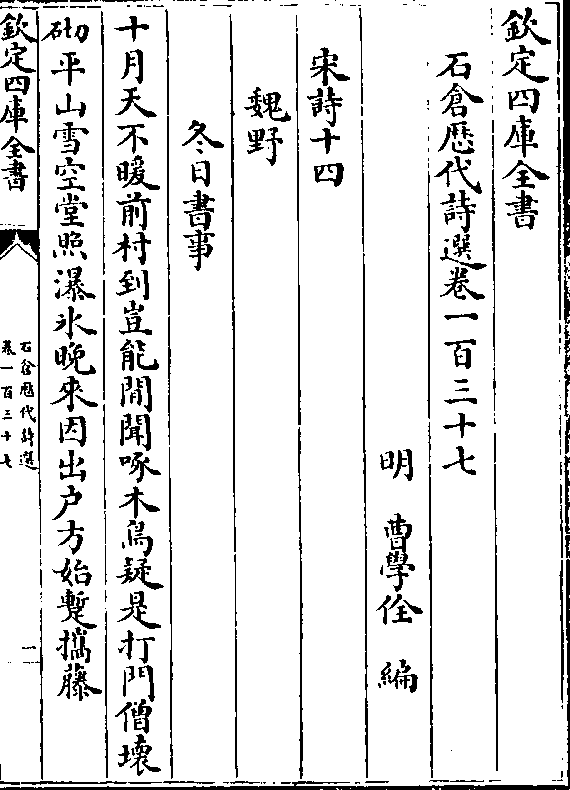 欽定四庫全書
石倉歴代詩選卷一百三十七
明　曹學佺　編
宋詩十四
魏野
冬日書事
十月天不暖前村到豈能間聞啄木鳥疑是打門僧壊
砌平山雪空堂照瀑氷晚來因出户方始蹔攜藤
欽定四庫全書
石倉歴代詩選
卷一百三十七
一